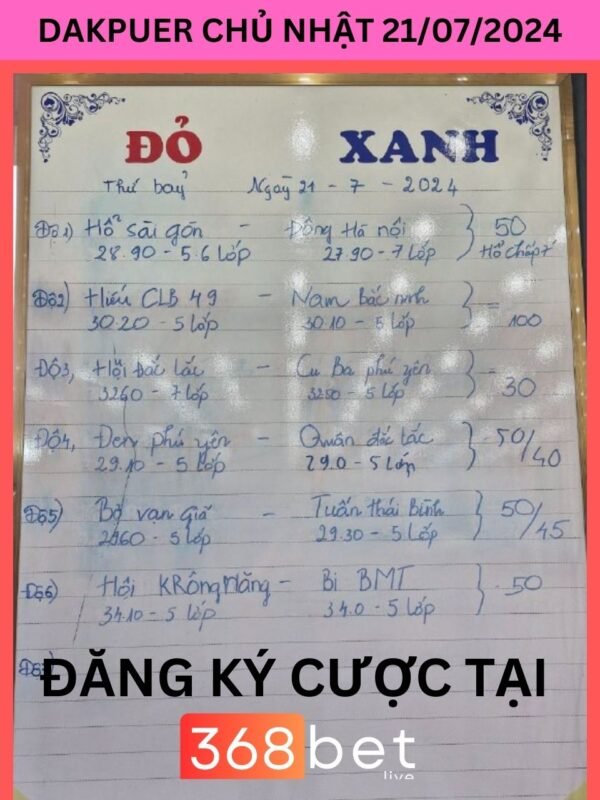 DAKPUER CHỦ NHẬT 21/07/2024
ĐỎ XANH
Thứ bảy Ngày 21 - 7 - 2024
Độ 1) Hổ sài gòn - Đông Hà nội } 50
28.90 - 5.6 Lốp 27.90 - 7 Lốp Hổ chấp
Độ 2) Hiếu CLB 49 - Nam Bắc ninh } 100
30.20 - 5 Lốp 30.10 - 5 Lốp
Độ 3, Hội Đắc Lắc - Cu Ba phú yên } 30
3260 - 7 Lốp 3250 - 5 Lốp
Độ 4, Đen phú yên - Quân đắc lắc } 50/40
29.10 - 5 Lốp 29.0 - 5 Lốp
Độ 5) Bờ vạn giã - Tuấn thái Bình } 50/45
2960 - 5 Lốp 29.30 - 5 Lốp
Độ 6) Hôi KRông Năng - Bi BMT } 50
34.10 - 5 Lốp 34.0 - 5 Lốp
ĐĂNG KÝ CƯỢC TẠI
368bet
live